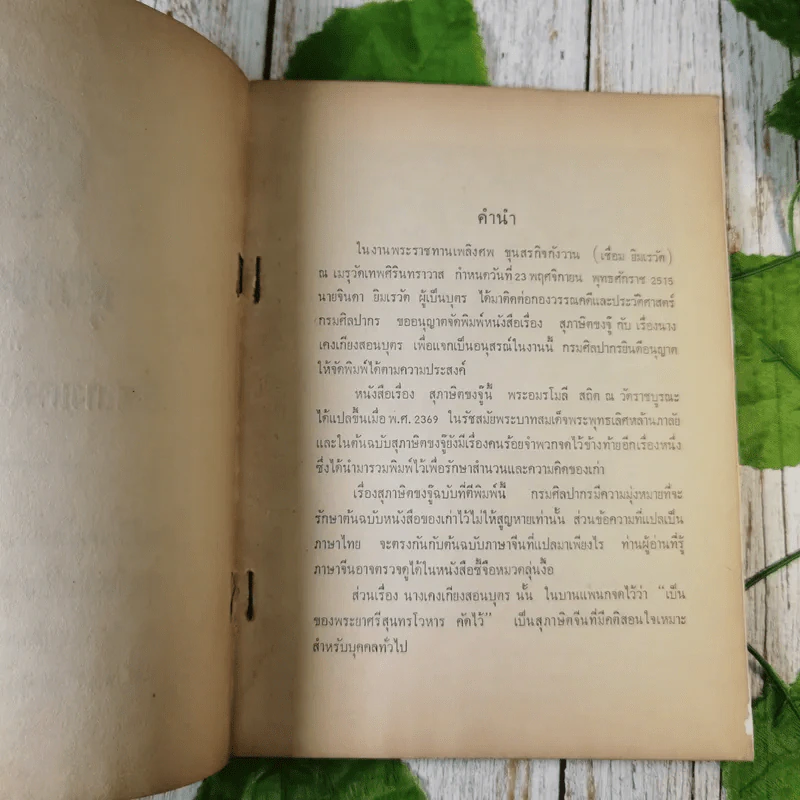 คำนำ
ในงานพระราชทานเพลิงศพ ขุนสรกิจกังวาน (เชื่อม ยิมเรวัต)
ณ เมรุวัดเทพศิรินทราวาส กำหนดวันที่ 23 พฤศจิกายน พุทธศักราช 2515
นายจินดา ยิมเรวัต ผู้เป็นบุตร ได้มาติดต่อกองวรรณคดีและประวัติศาสตร์
กรมศิลปากร ขออนุญาตจัดพิมพ์หนังสือเรื่อง สุภาษิตขงจู๊ กับ เรื่องนาง
เคงเกียงสอนบุตร เพื่อแจกเป็นอนุสรณ์ในงานนี้ กรมศิลปากรยินดีอนุญาต
ให้จัดพิมพ์ได้ตามความประสงค์
หนังสือเรื่อง สุภาษิตขงจู๊นี้ พระอมรโมลี สถิต ณ วัดราชบูรณะ
ได้แปลขึ้นเมื่อ พ.ศ. 2369 ในรัชสมัยพระบาทสมเด็จพระพุทธเลิศหล้านภาลัย
และในต้นฉบับสุภาษิตขงจู๊ยังมีเรื่องคนร้อยจำพวกจดไว้ข้างท้ายอีกเรื่องหนึ่ง
ซึ่งได้นำมารวมพิมพ์ไว้เพื่อรักษาสำนวนและความคิดของเก่า
เรื่องสุภาษิตขงจู๊ฉบับที่ตีพิมพ์นี้ กรมศิลปากรมีความมุ่งหมายที่จะ
รักษาต้นฉบับหนังสือของเก่าไว้ไม่ให้สูญหายเท่านั้น ส่วนข้อความที่แปลเป็น
ภาษาไทย จะตรงกันกับต้นฉบับภาษาจีนที่แปลมาเพียงไร ท่านผู้อ่านที่รู้
ภาษาจีนอาจตรวจดูได้ในหนังสือซี้จือหมวดลุ่นงื้อ
ส่วนเรื่อง นางเคงเกียงสอนบุตร นั้น ในบานแพนกจดไว้ว่า "เป็น
ของพระยาศรีสุนทรโวหาร คัดไว้" เป็นสุภาษิตจีนที่มีคติสอนใจเหมาะ
สำหรับบุคคลทั่วไป